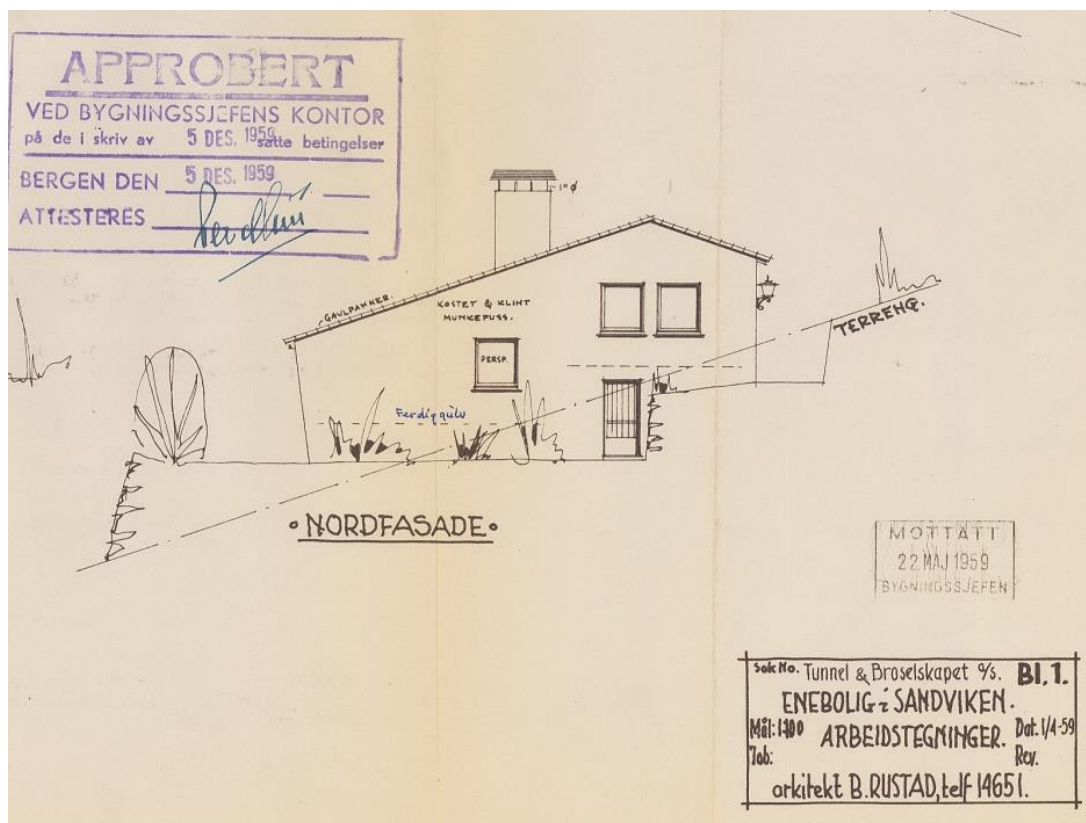 APPROBERT
VED BYGNINGSSJEFENS KONTOR
på de i skriv av 5 DES. 1959 satte betingelser
BERGEN DEN 5 DES. 1959
ATTESTERES
GAULPANNER.
KOSTET & KLINT
MUNKEPUSS.
PERSP.
TERRENG.
Ferdiggulv
• NORDFASADE •
MOTTATT
22 MAJ 1959
BYGNINGSSJEFEN
Sak No. Tunnel & Broselskapet a/s. Bl. 1.
ENEBOLIG i SANDVIKEN.
Mål: 1:100 ARBEIDSTEGNINGER. Dat. 1/4-59
Job: Rev.
arkitekt B. RUSTAD, telf 14651.